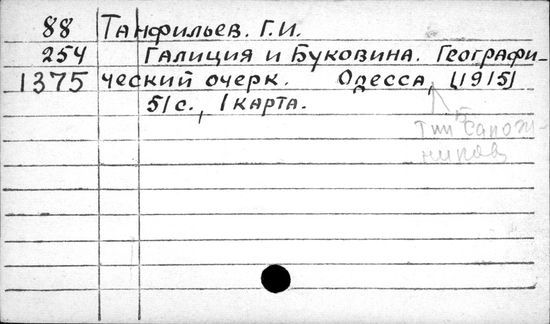 88 Танфильев. Г.И.
254 Галиция и Буковина. Географи-
1375 ческий очерк. Одесса, [1915]
51с., 1 карта.
тип Сапож-
ников